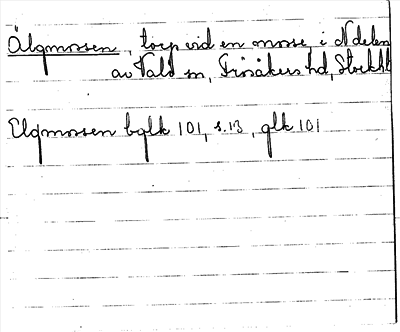 Älgmossen, torp vid en mosse, i N delen
av Vald sn, Frösåkers hd, Stockh
Elgmossen bglk 101, s. 13, glk 101